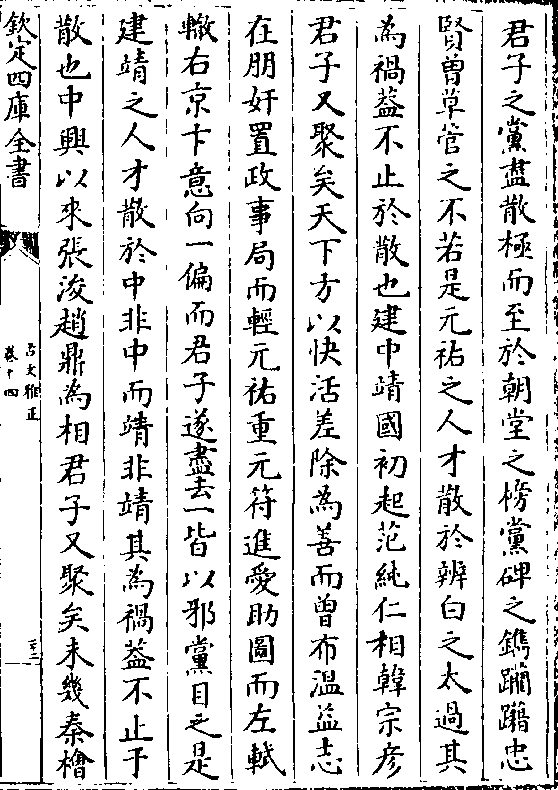 君子之黨盡散極而至於朝堂之榜黨碑之鐫躪躤忠
賢曾草菅之不若是元祐之人才散於辨白之太過其
為禍葢不止於散也建中靖國初起范純仁相韓宗彦
君子又聚矣天下方以快活差除為善而曾布溫益志
在朋奸置政事局而輕元祐重元符進愛助圖而左軾
轍右京卞意向一偏而君子遂盡去一皆以邪黨目之是
建靖之人才散於中非中而靖非靖其為禍葢不止于
散也中興以來張浚趙鼎為相君子又聚矣未幾秦檜
欽定四庫全書
古文雅正
卷十四